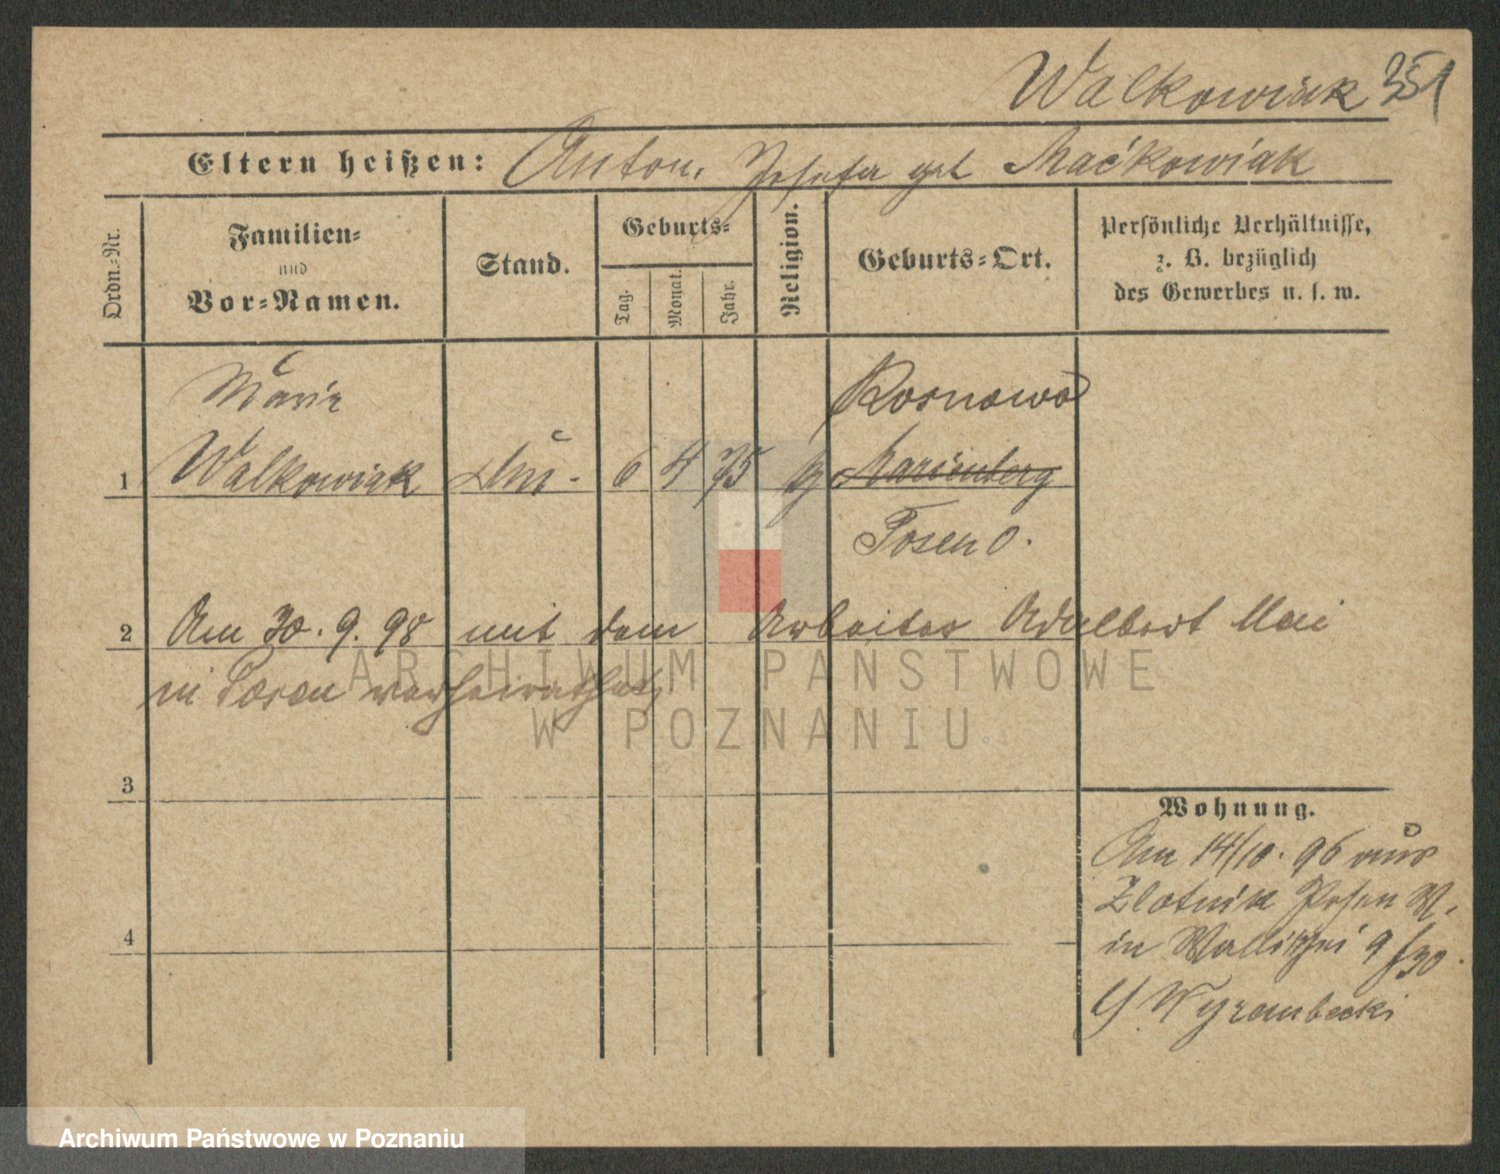 Walkowiak 351
Eltern heißen: Anton, Josefa geb Maćkowiak
Ordn.-Nr.
Familien-
und
Vor-Namen.
Stand.
Geburts-
Tag.
Monat.
Jahr.
Religion.
Geburts-Ort.
Persönliche Verhältnisse,
z. B. bezüglich
des Gewerbes u. s. w.
Marie Rosnowo
1 Walkowiak 6 4 75 Marienberg
Posen O.
2 Am 30. 9. 98 mit dem Arbeiter Adalbert Mai
in Posen verheirathet
3
Wohnung.
Am 14/10. 96 aus
Zlotnik Posen W.
4 in Wallischei 9 f30.
b/ Wyrembecki
ARCHIWUM PAŃSTWOWE
W POZNANIU
Archiwum Państwowe w Poznaniu